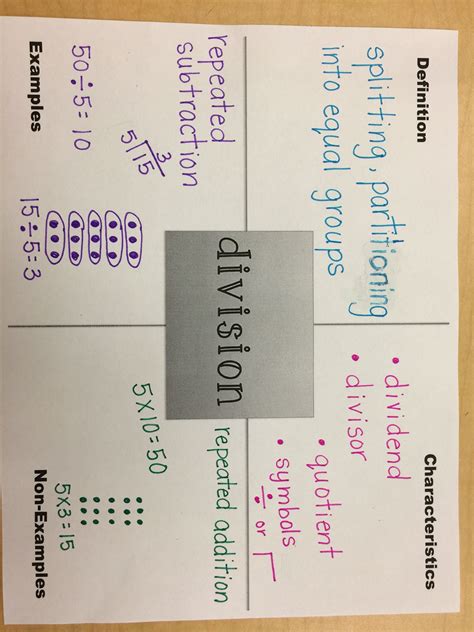 Definition
splitting, partitioning
into equal groups
Characteristics
• dividend
• divisor
• quotient
• symbols
÷ or
division
repeated
subtraction
3
5 15
50÷5=10
15÷5=3
Examples
repeated addition
5x10=50
5x3=15
Non-Examples